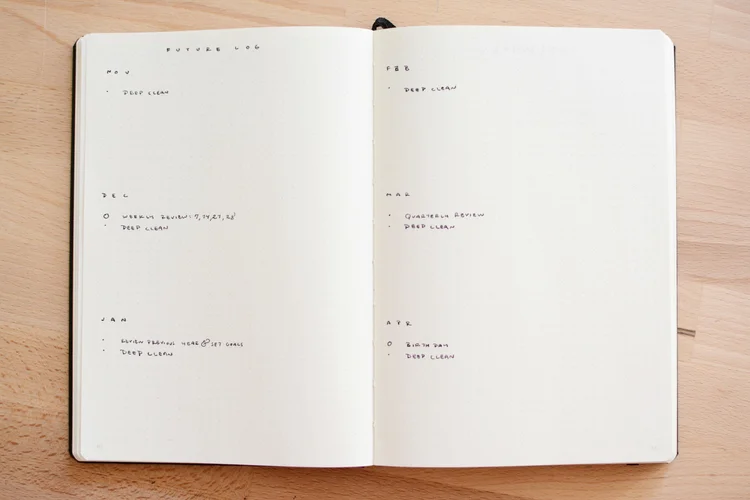 FUTURE LOG
NOV
· DEEP CLEAN
DEC
O WEEKLY REVIEW: 7, 14, 21, 28
· DEEP CLEAN
JAN
· REVIEW PREVIOUS YEAR & SET GOALS
· DEEP CLEAN
FEB
· DEEP CLEAN
MAR
· QUARTERLY REVIEW
· DEEP CLEAN
APR
O BIRTHDAY
· DEEP CLEAN